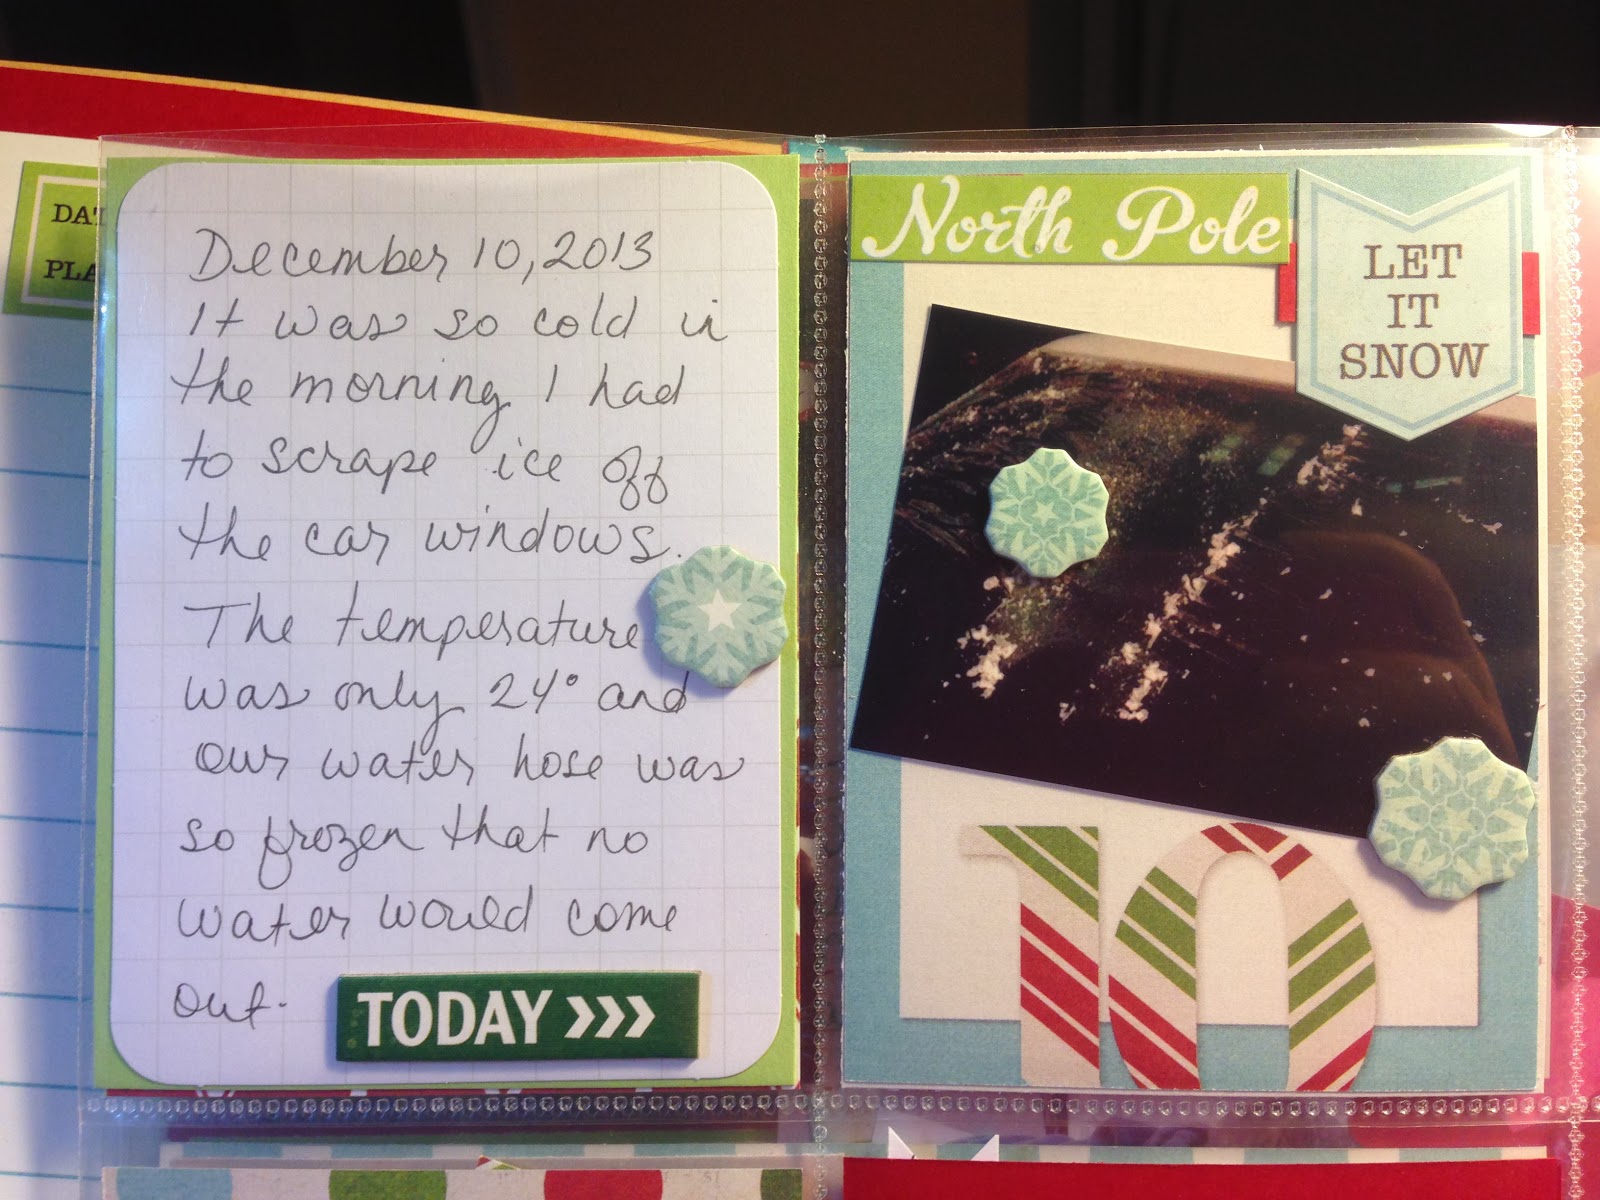 DAT
PLA
December 10, 2013
It was so cold in
the morning I had
to scrape ice off
the car windows.
The temperature
was only 24° and
our water hose was
so frozen that no
water would come
out.
TODAY >>>
North Pole
LET
IT
SNOW
10